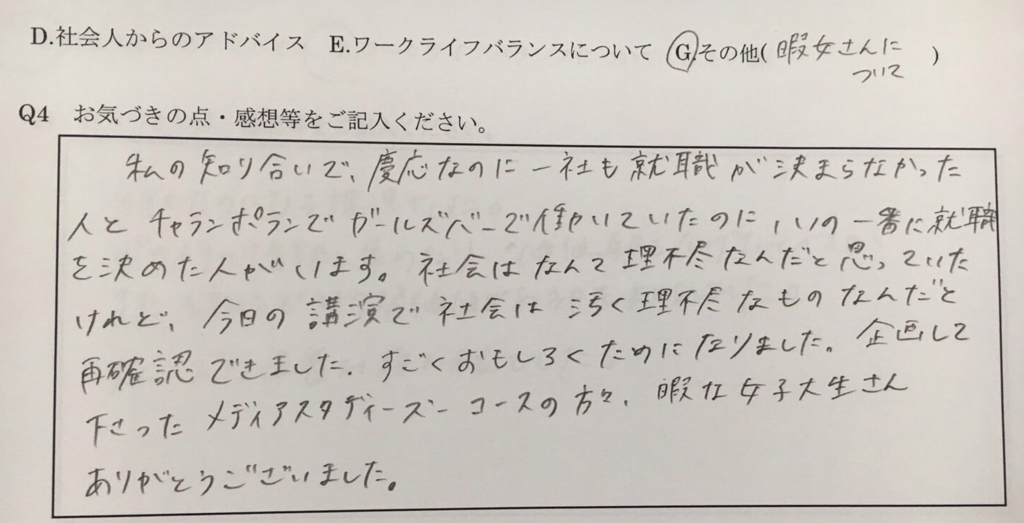 D.社会人からのアドバイス E.ワークライフバランスについて G.その他(暇女さんに
ついて)
Q4 お気づきの点・感想等をご記入ください。
私の知り合いで、慶応なのに一社も就職が決まらなかった
人とチャランポランでガールズバーで働いていたのにいの一番に就職
を決めた人がいます。社会はなんて理不尽なんだと思っていた
けれど、今日の講演で社会は汚く理不尽なものなんだと
再確認できました。すごくおもしろくためになりました。企画して
下さったメディアスタディーズコースの方々、暇な女子大生さん
ありがとうございました。